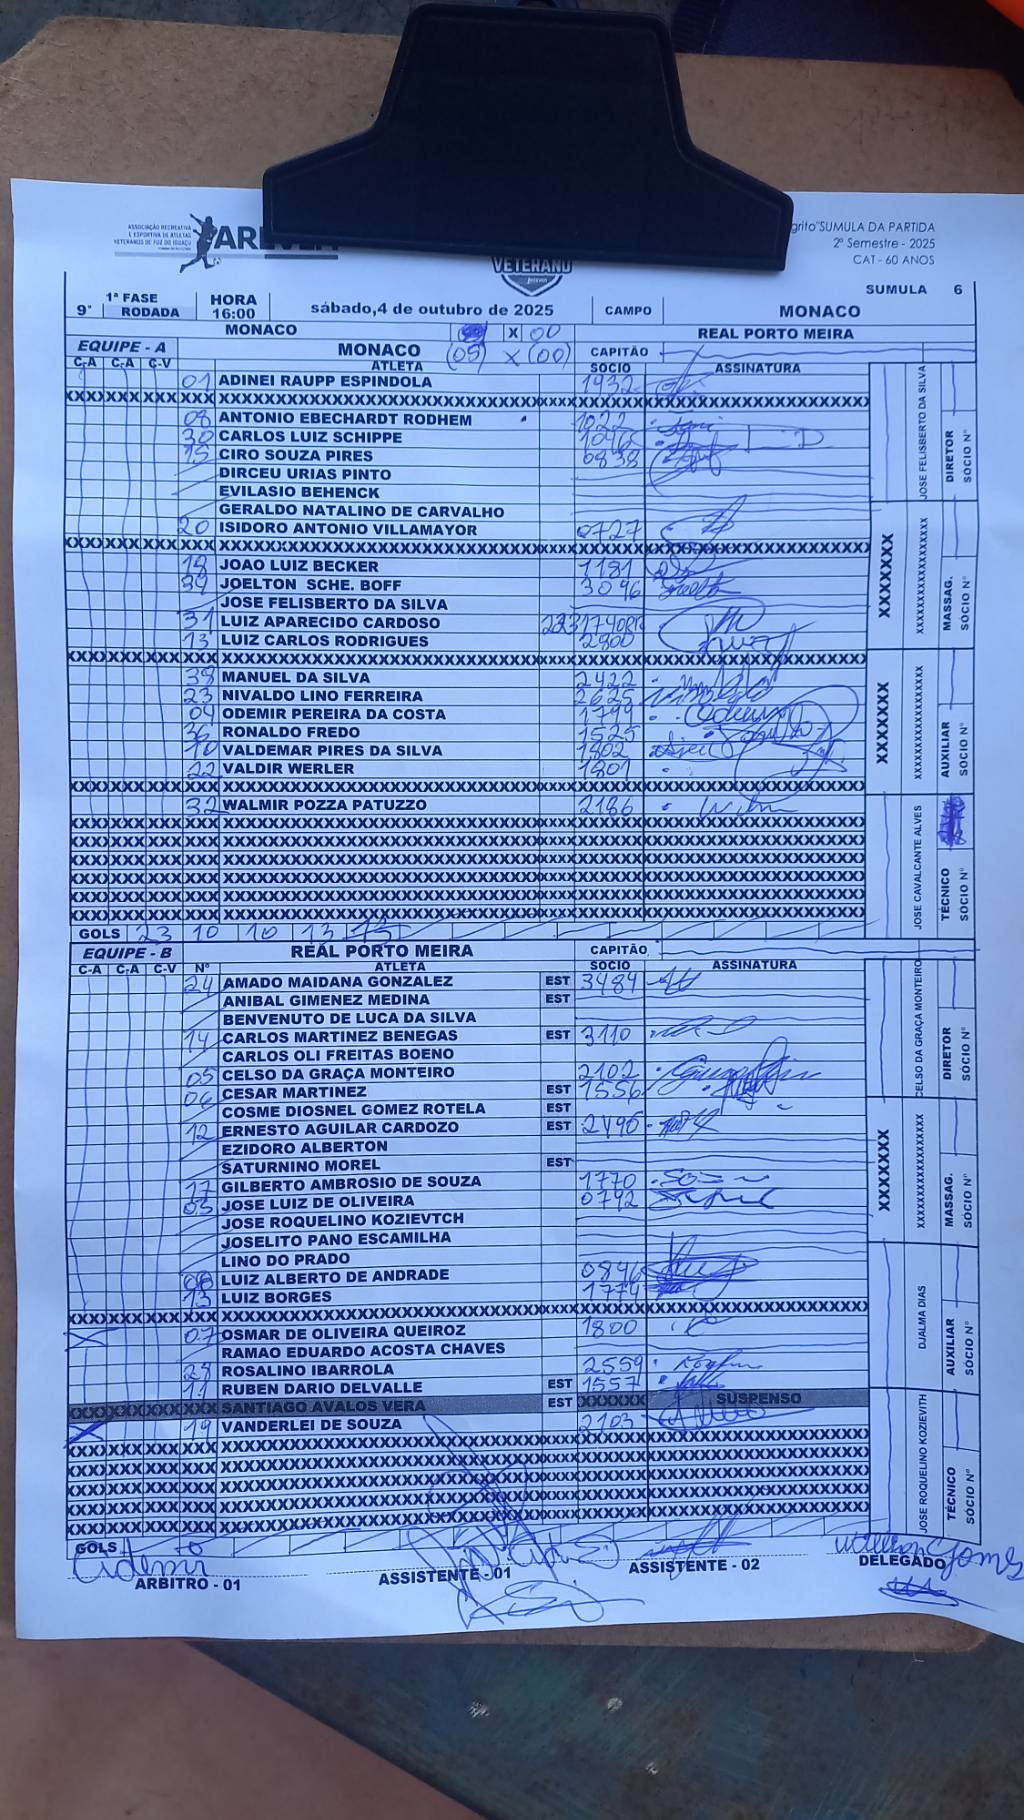 ASSOCIAÇÃO RECREATIVA
E ESPORTIVA DE ATLETAS
VETERANOS DE FOZ DO IGUAÇU
VETERANO
SUMULA DA PARTIDA
2º Semestre - 2025
CAT - 60 ANOS
SUMULA 6
9ª 1ª FASE RODADA HORA 16:00 sábado,4 de outubro de 2025 CAMPO MONACO
MONACO X 00 REAL PORTO MEIRA
EQUIPE - A MONACO (05) X (00) CAPITÃO
C-A C-A C-V ATLETA SOCIO ASSINATURA
01 ADINEI RAUPP ESPINDOLA 1932
08 ANTONIO EBECHARDT RODHEM 1022
30 CARLOS LUIZ SCHIPPE
15 CIRO SOUZA PIRES 0838
DIRCEU URIAS PINTO
EVILASIO BEHENCK
GERALDO NATALINO DE CARVALHO
20 ISIDORO ANTONIO VILLAMAYOR 0727
18 JOAO LUIZ BECKER 1181
39 JOELTON SCHE. BOFF 3096
JOSE FELISBERTO DA SILVA
31 LUIZ APARECIDO CARDOSO
13 LUIZ CARLOS RODRIGUES 2800
38 MANUEL DA SILVA 2422
23 NIVALDO LINO FERREIRA 2625
04 ODEMIR PEREIRA DA COSTA 1799
36 RONALDO FREDO 1525
10 VALDEMAR PIRES DA SILVA 1802
22 VALDIR WERLER 1801
32 WALMIR POZZA PATUZZO 2186
GOLS 23 10 10 13 13
JOSE FELISBERTO DA SILVA
DIRETOR
SÓCIO Nº
MASSAG.
SÓCIO Nº
AUXILIAR
SÓCIO Nº
JOSE CAVALCANTE ALVES
TÉCNICO
SÓCIO Nº
EQUIPE - B REAL PORTO MEIRA CAPITÃO
C-A C-A C-V Nº ATLETA SOCIO ASSINATURA
24 AMADO MAIDANA GONZALEZ EST 3484
ANIBAL GIMENEZ MEDINA EST
BENVENUTO DE LUCA DA SILVA
14 CARLOS MARTINEZ BENEGAS EST 3110
CARLOS OLI FREITAS BOENO
05 CELSO DA GRAÇA MONTEIRO 2102
06 CESAR MARTINEZ EST 1556
COSME DIOSNEL GOMEZ ROTELA EST
12 ERNESTO AGUILAR CARDOZO EST 2496
EZIDORO ALBERTON
SATURNINO MOREL EST
17 GILBERTO AMBROSIO DE SOUZA 1770
03 JOSE LUIZ DE OLIVEIRA 0792
JOSE ROQUELINO KOZIEVTCH
JOSELITO PANO ESCAMILHA
LINO DO PRADO
08 LUIZ ALBERTO DE ANDRADE 0846
13 LUIZ BORGES 1774
07 OSMAR DE OLIVEIRA QUEIROZ 1800
RAMAO EDUARDO ACOSTA CHAVES
28 ROSALINO IBARROLA 2559
11 RUBEN DARIO DELVALLE EST 1557
SANTIAGO AVALOS VERA EST XXXXXX SUSPENSO
19 VANDERLEI DE SOUZA 2103
GOLS
CELSO DA GRAÇA MONTEIRO
DIRETOR
SÓCIO Nº
MASSAG.
SÓCIO Nº
DJALMA DIAS
AUXILIAR
SÓCIO Nº
JOSE ROQUELINO KOZIEVITH
TÉCNICO
SÓCIO Nº
Cidemir
ARBITRO - 01 ASSISTENTE - 01 ASSISTENTE - 02 DELEGADO